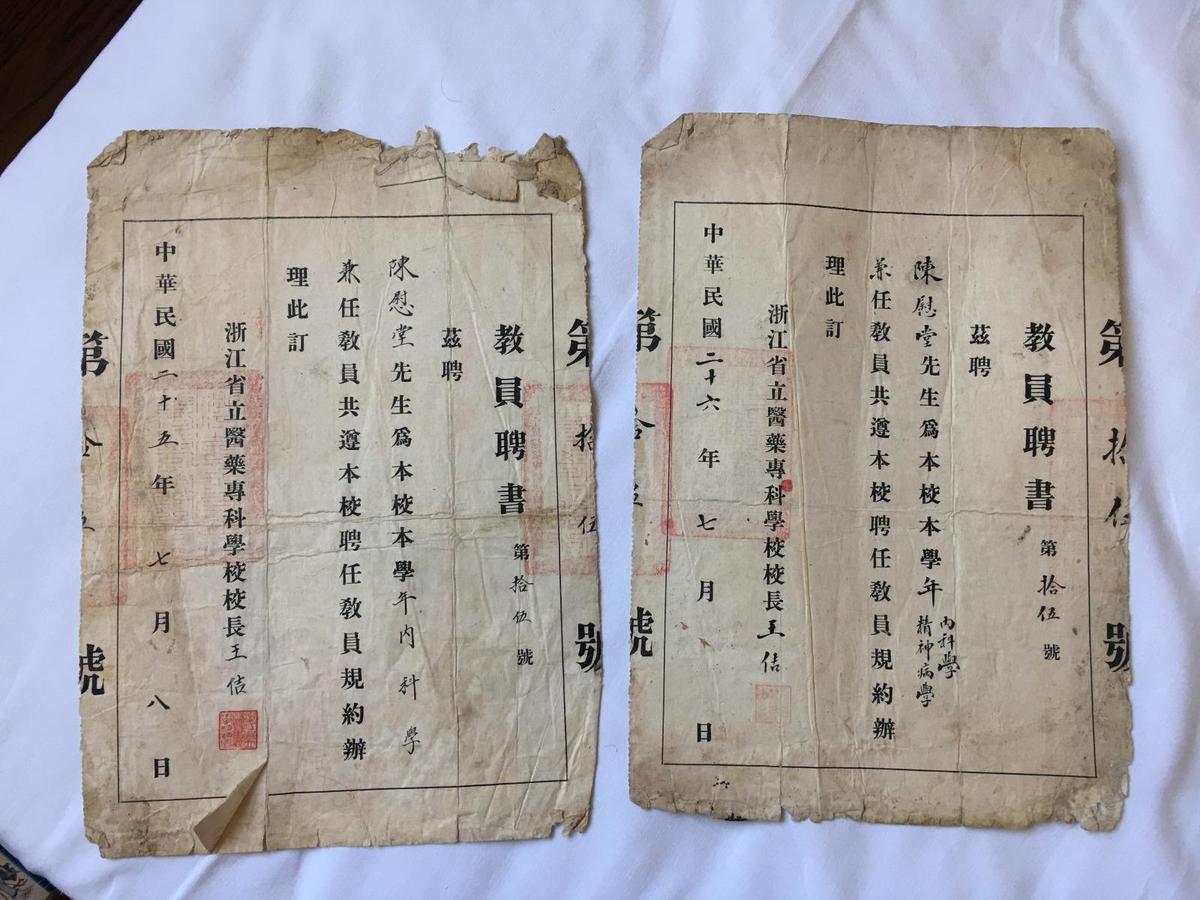 第 拾 號
教員聘書 第拾伍號
茲聘
陳慰堂先生為本校本學年
內科學
精神病學
兼任教員共遵本校聘任教員規約辦
理此訂
浙江省立醫藥專科學校校長王佶
中華民國二十六年七月 日
第 號
第 拾伍 號
教員聘書 第拾伍號
茲聘
陳慰堂先生為本校本學年內科學
兼任教員共遵本校聘任教員規約辦
理此訂
浙江省立醫藥專科學校校長王佶
中華民國二十五年七月八日
第 號